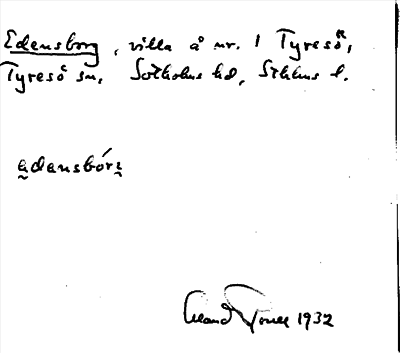 Edensborg, villa å nr. 1 Tyresö,
Tyresö sn, Sotholms hd, Sthlms l.
edensbórj
1932